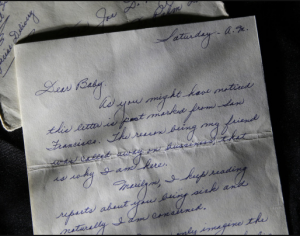 Special Delivery
Joe D.
Saturday - A.M.
Dear Baby,
As you might have noticed
this letter is post marked from San
Francisco. The reason being my friend
was called away on business, that
is why I am here.
Marilyn, I keep reading
reports about you being sick and
naturally I am concerned.
only imagine the